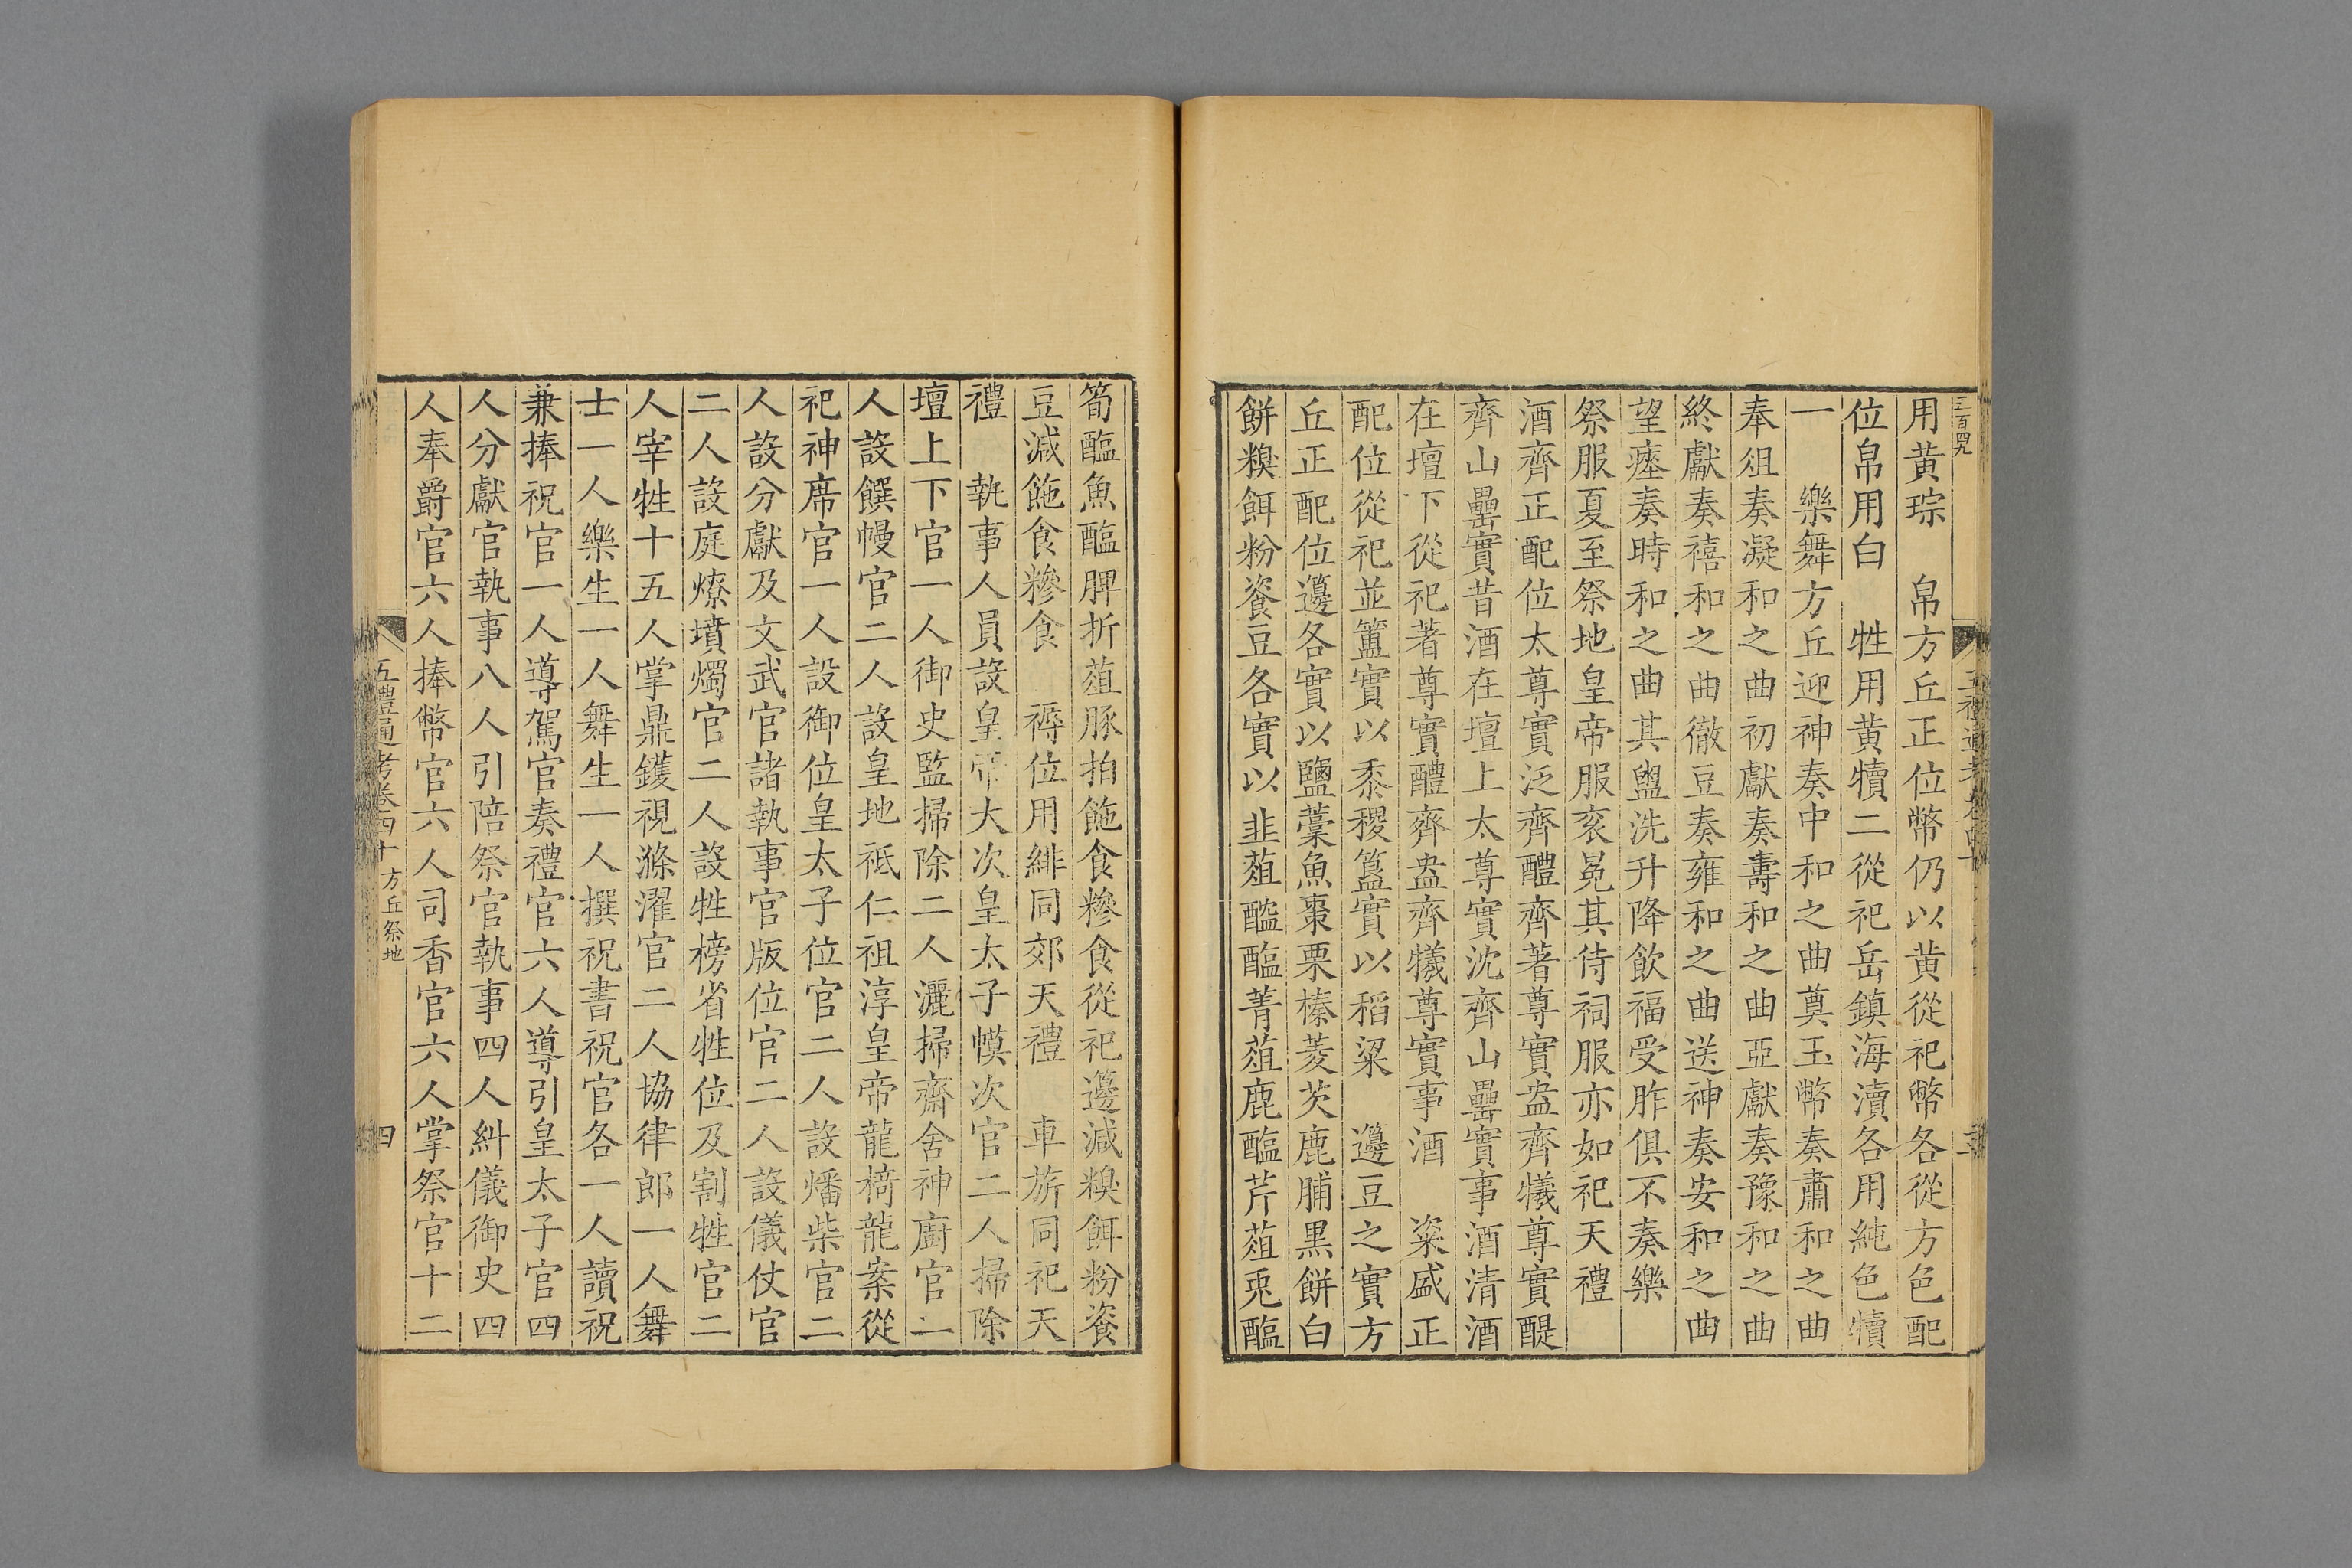 用黄琮　帛方丘正位幣仍以黄從祀幣各從方色配
位帛用白　牲用黄犢二從祀岳鎮海瀆各用純色犢
一　樂舞方丘迎神奏中和之曲奠玉幣奏肅和之曲
奉俎奏凝和之曲初獻奏壽和之曲亞獻奏豫和之曲
終獻奏禧和之曲徹豆奏雍和之曲送神奏安和之曲
望瘞奏時和之曲其盥洗升降飲福受胙俱不奏樂
祭服夏至祭地皇帝服衮冕其侍祠服亦如祀天禮
酒齊正配位太尊實泛齊醴齊著尊實盎齊犧尊實醍
齊山罍實昔酒在壇上太尊實沈齊山罍實事酒清酒
在壇下從祀著尊實醴齊盎齊犧尊實事酒　粢盛正
配位從祀並簠實以黍稷簋實以稻粱　籩豆之實方
丘正配位籩各實以鹽藁魚棗栗榛菱芡鹿脯黒餅白
餅糗餌粉餈豆各實以韭菹醓醢菁菹鹿醢芹菹兎醢
筍醢魚醢脾折菹豚拍飽食糝食從祀籩減糗餌粉餈
豆減飽食糝食　褥位用緋同郊天禮　車旂同祀天
禮　執事人員設皇帝大次皇太子幙次官二人掃除
壇上下官一人御史監掃除二人灑掃齋舍神廚官二
人設饌幔官二人設皇地祗仁祖淳皇帝龍椅龍案從
祀神席官一人設御位皇太子位官二人設燔柴官二
人設分獻及文武官諸執事官版位官二人設儀仗官
二人設庭燎墳燭官二人設牲榜省牲位及割牲官二
人宰牲十五人掌鼎鑊視滌濯官二人協律郎一人舞
士一人樂生一人舞生一人撰祝書祝官各一人讀祝
兼捧祝官一人導駕官奏禮官六人導引皇太子官四
人分獻官執事八人引陪祭官執事四人糾儀御史四
人奉爵官六人捧幣官六人司香官六人掌祭官十二
五禮通考卷四十 方丘祭地　四